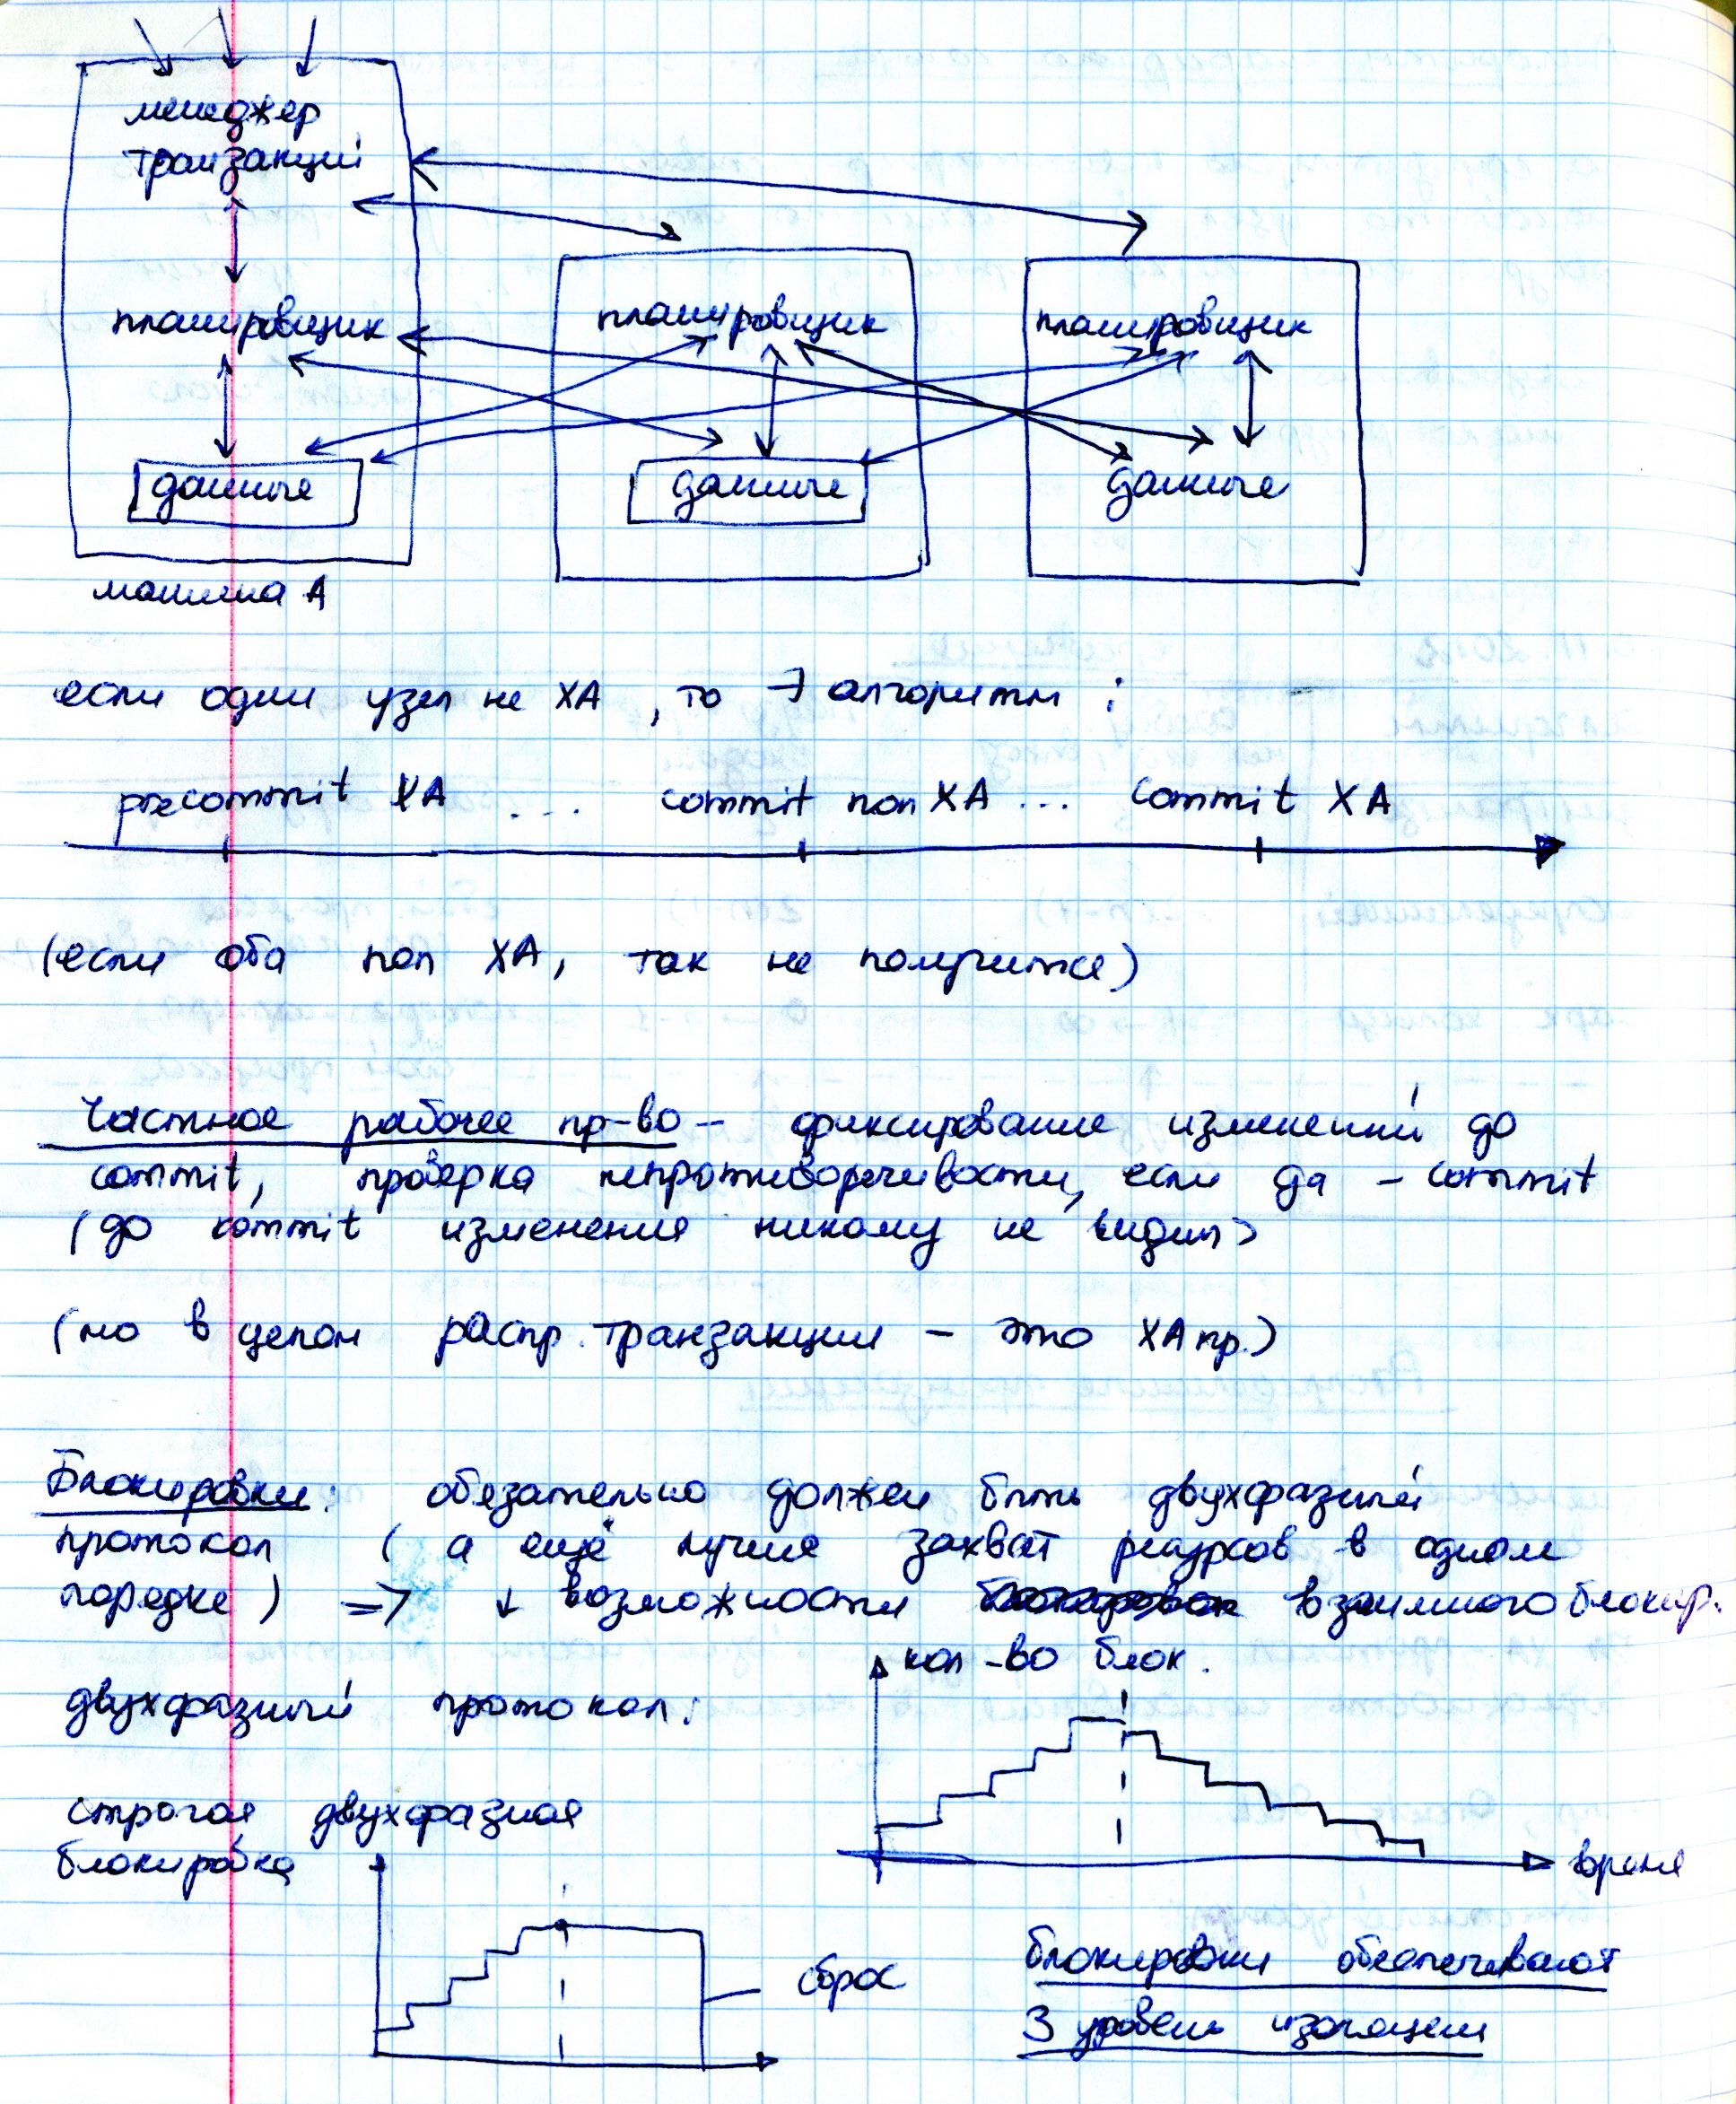 менеджер
транзакций
планировщик
планировщик
планировщик
данные
данные
данные
машина А
если один узел не XA, то ∃ алгоритм:
precommit XA ... commit non XA ... commit XA
(если оба non XA, так не получится)
Частное рабочее пр-во - фиксирование изменений до
commit, проверка непротиворечивости, если да - commit
(до commit изменения никому не видны)
(но в целом распр. транзакции - это XA пр.)
Блокировки: обязательно должен быть двухфазный
протокол (а ещё лучше захват ресурсов в одном
порядке) => ↓ возможности взаимного блокир.
кол-во блок.
двухфазный протокол:
строгая двухфазная
блокировка
время
сброс
блокировки обеспечивают
3 уровень изоляции